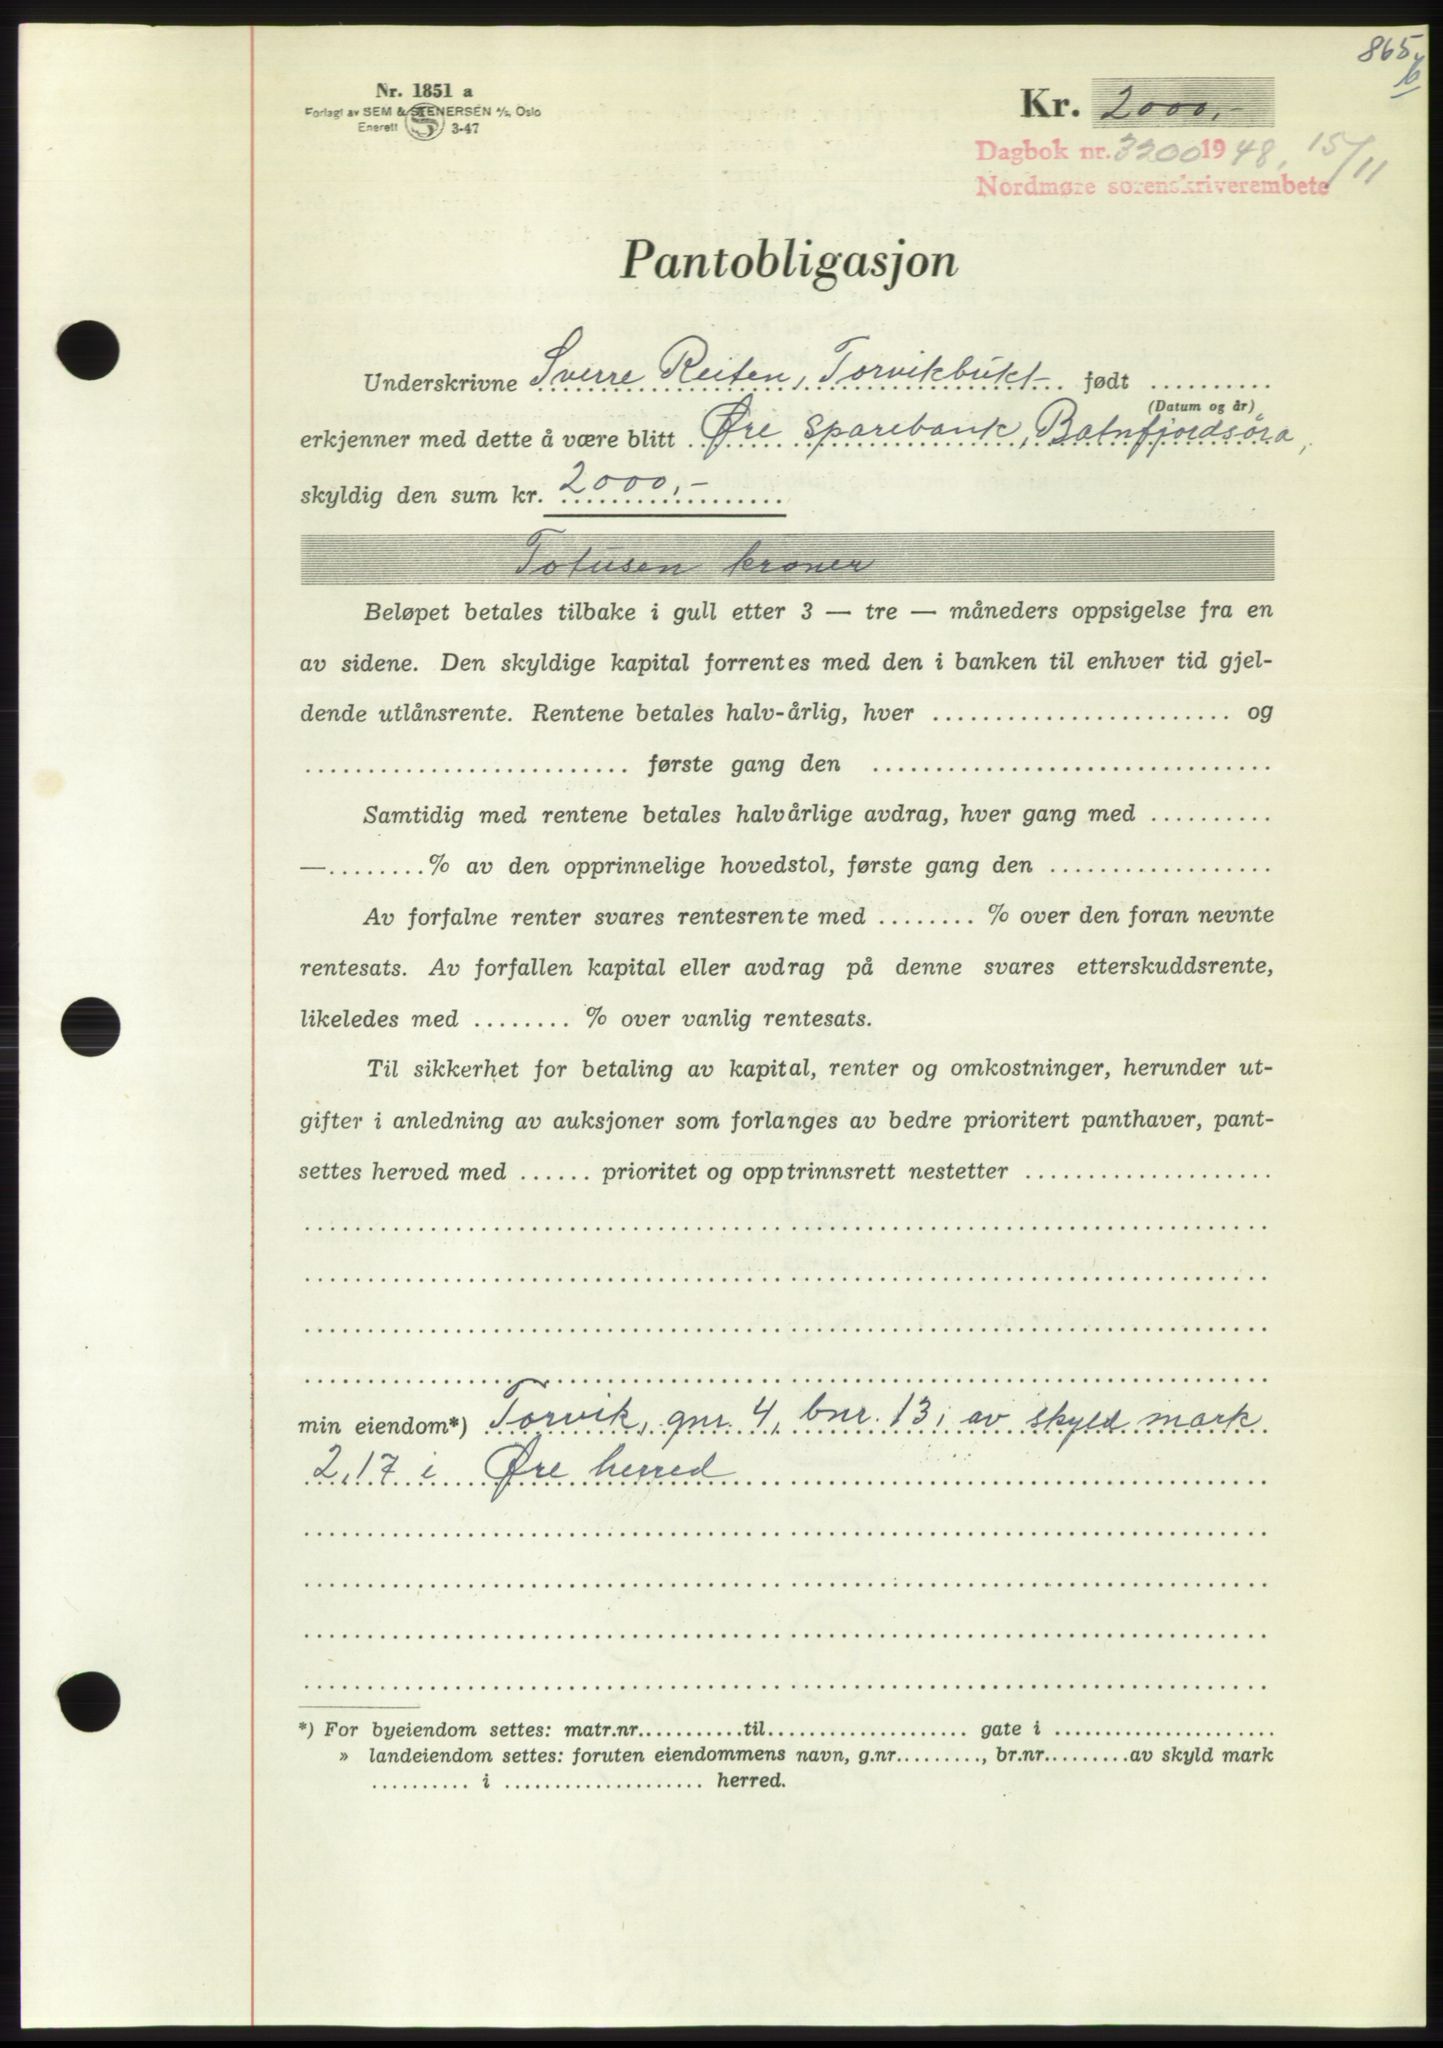 865 b
Nr. 1851 a
Forlagt av SEM & STENERSEN A/S, Oslo
Enerett S 3-47
Kr. 2000,-
Dagbok nr. 3200 1948, 15/11
Nordmøre sorenskriverembete
Pantobligasjon
Underskrivne Sverre Reiten, Torvikbukt født ..........
(Datum og år)
erkjenner med dette å være blitt Øre Sparebank, Batnfjordsøra,
skyldig den sum kr. 2000,-
Totusen kroner
Beløpet betales tilbake i gull etter 3 — tre — måneders oppsigelse fra en
av sidene. Den skyldige kapital forrentes med den i banken til enhver tid gjel-
dende utlånsrente. Rentene betales halv-årlig, hver .......................... og
.......................... første gang den ................................
Samtidig med rentene betales halvårlige avdrag, hver gang med ..........
—........% av den opprinnelige hovedstol, første gang den ..................
Av forfalne renter svares rentesrente med ........ % over den foran nevnte
rentesats. Av forfallen kapital eller avdrag på denne svares etterskuddsrente,
likeledes med ........ % over vanlig rentesats.
Til sikkerhet for betaling av kapital, renter og omkostninger, herunder ut-
gifter i anledning av auksjoner som forlanges av bedre prioritert panthaver, pant-
settes herved med ...... prioritet og opptrinnsrett nestetter ....................
min eiendom*) Torvik, gnr. 4, bnr. 13, av skyld mark
2,17 i Øre herred
*) For byeiendom settes: matr.nr...........til.................... gate i ......................
» landeiendom settes: foruten eiendommens navn, g.nr........., br.nr.........av skyld mark
.......... i .................... herred.